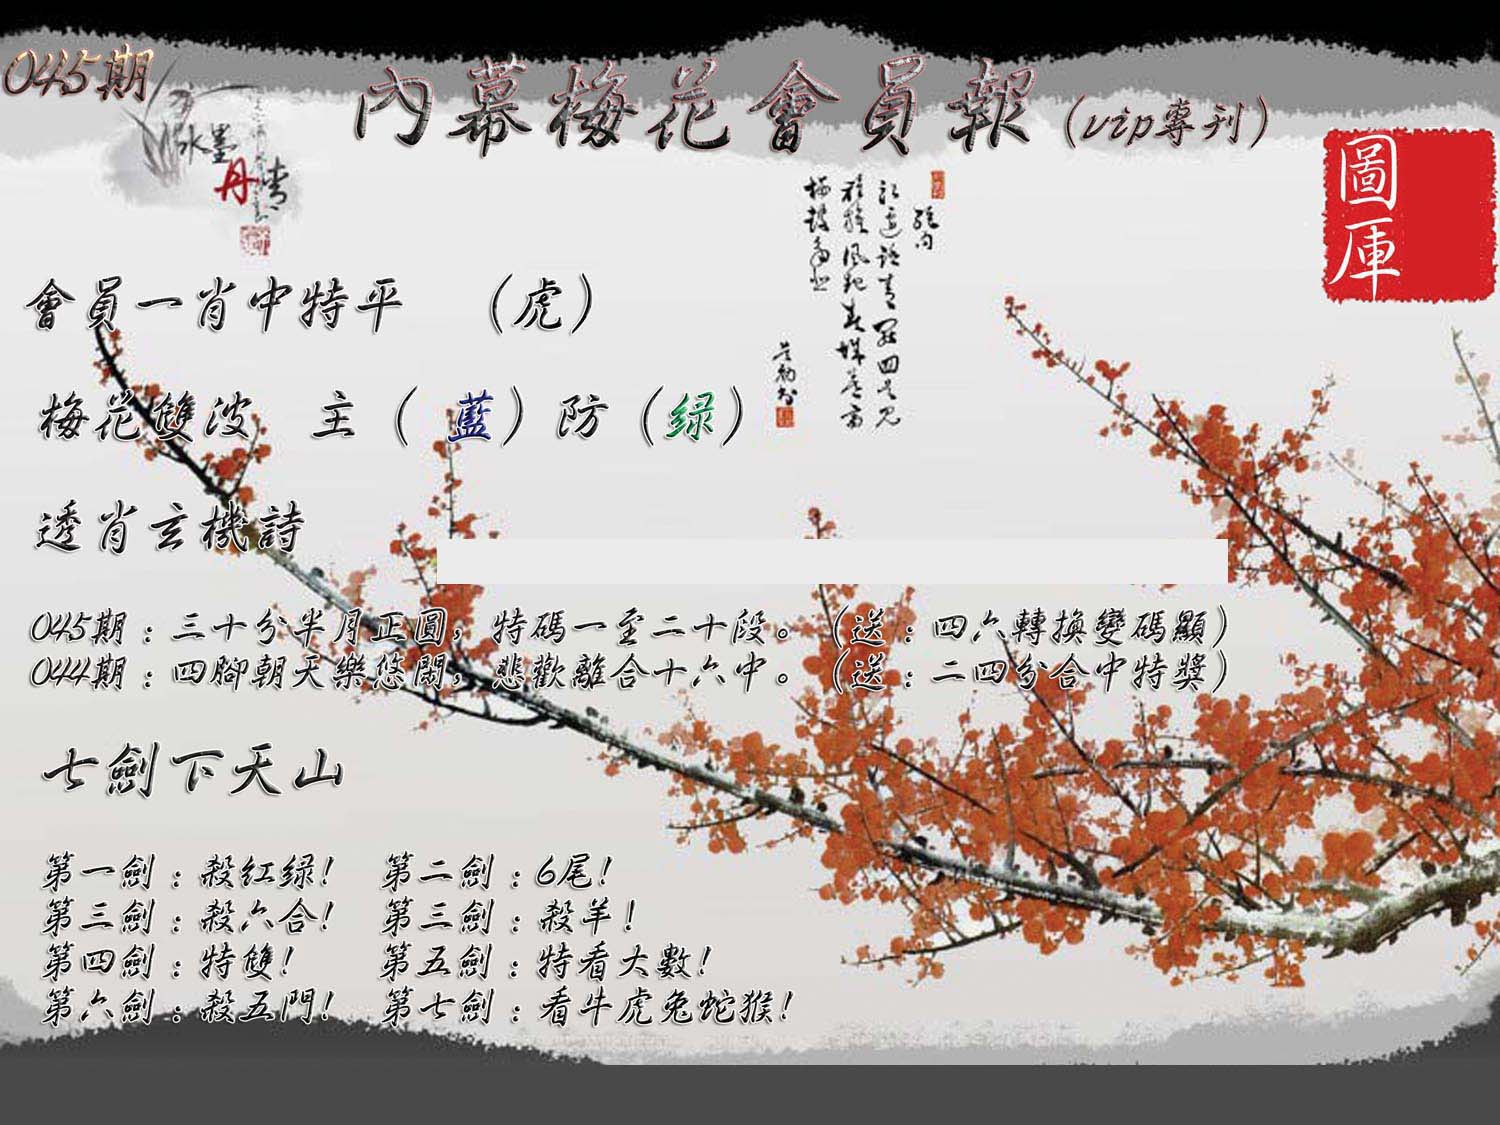 045期
水墨丹青
內幕梅花會員報(vip專刊)
圖庫
會員一肖中特平 (虎)
梅花雙波 主(藍)防(绿)
透肖玄機詩
045期:三十分半月正圓,特碼一至二十段。(送:四六轉換變碼顯)
044期:四腳朝天樂悠閑,悲歡離合十六中。(送:二四分合中特獎)
七劍下天山
第一劍:殺紅绿! 第二劍:6尾!
第三劍:殺六合! 第三劍:殺羊!
第四劍:特雙! 第五劍:特看大數!
第六劍:殺五門! 第七劍:看牛虎兔蛇猴!